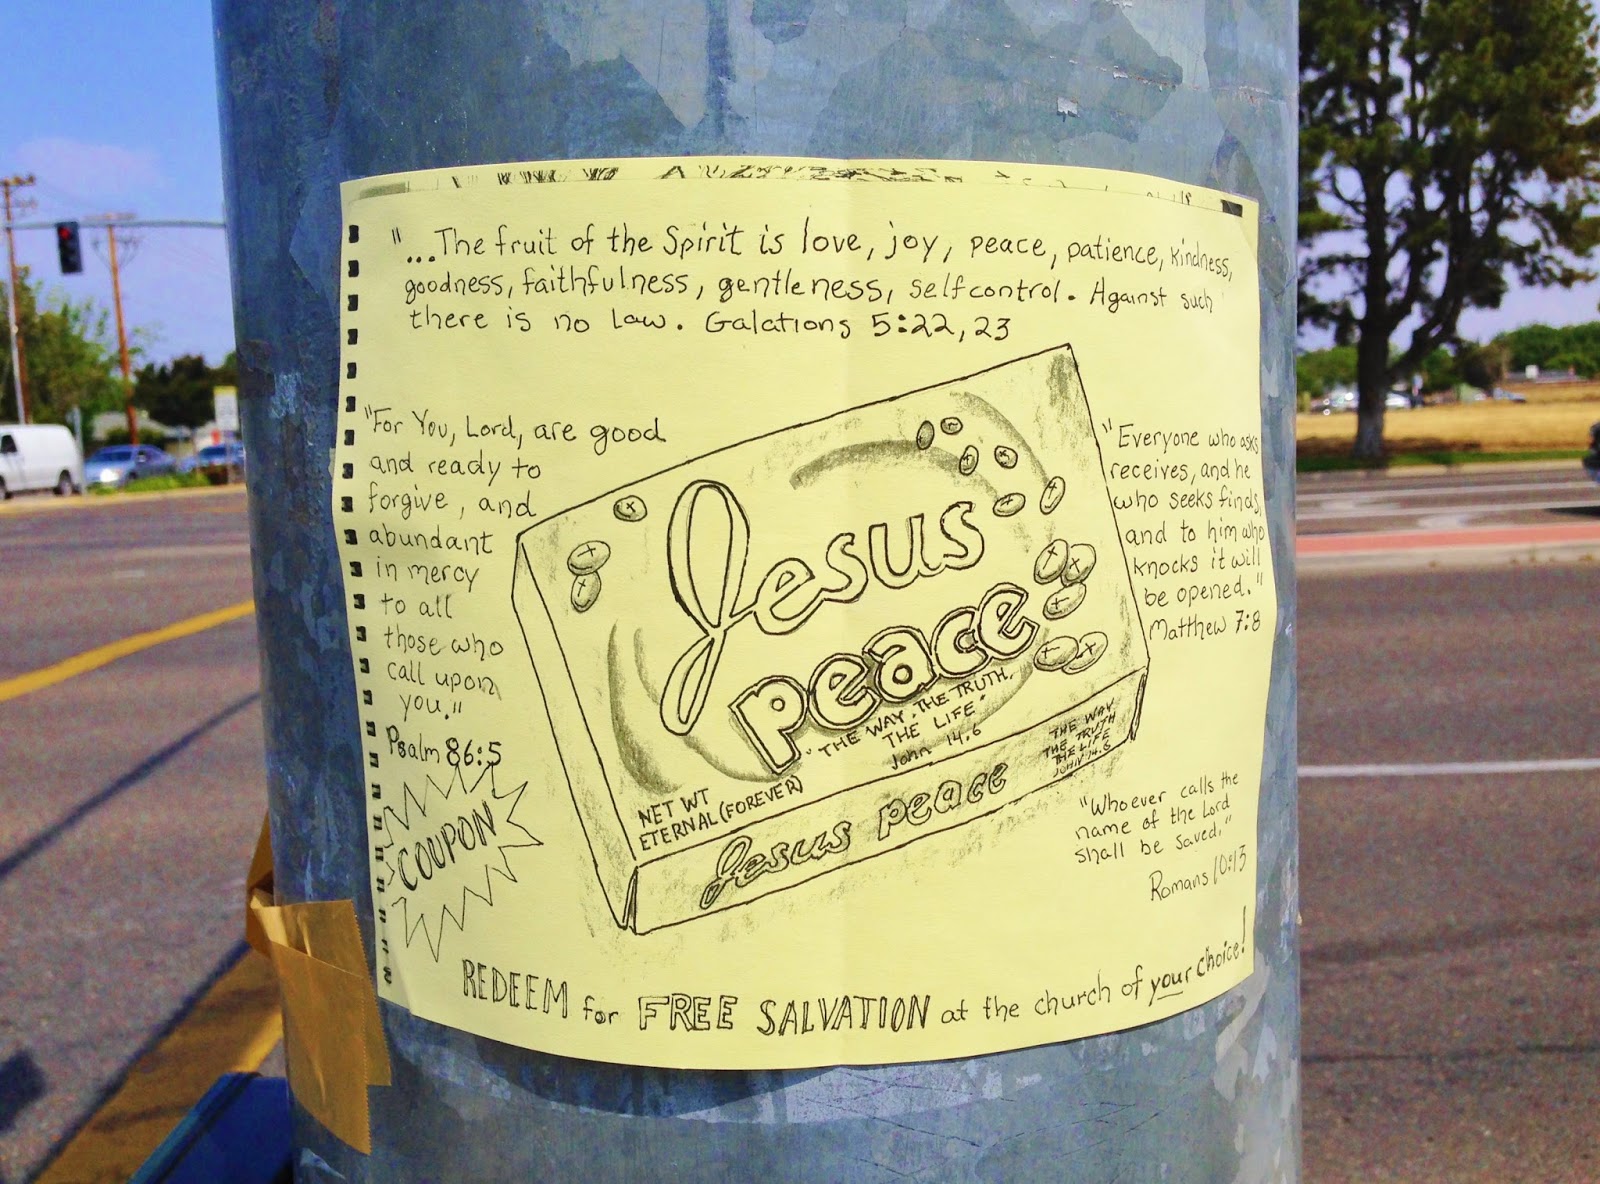 "...The fruit of the Spirit is love, joy, peace, patience, kindness,
goodness, faithfulness, gentleness, selfcontrol. Against such
there is no law. Galations 5:22,23
"For You, Lord, are good
and ready to
forgive, and
abundant
in mercy
to all
those who
call upon
you."
Psalm 86:5
COUPON
Jesus
peace
"THE WAY, THE TRUTH,
THE LIFE"
John 14.6
NET WT
ETERNAL (FOREVER)
Jesus peace
THE WAY
THE TRUTH
THE LIFE
JOHN 14.6
"Everyone who asks
receives, and he
who seeks finds,
and to him who
knocks it will
be opened."
Matthew 7:8
"Whoever calls the
name of the Lord
shall be saved."
Romans 10:13
REDEEM for FREE SALVATION at the church of your choice!